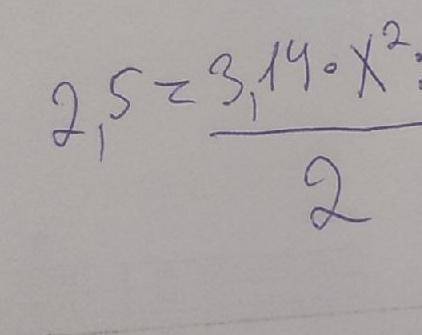 2,5 = 3,14 · X² :
2